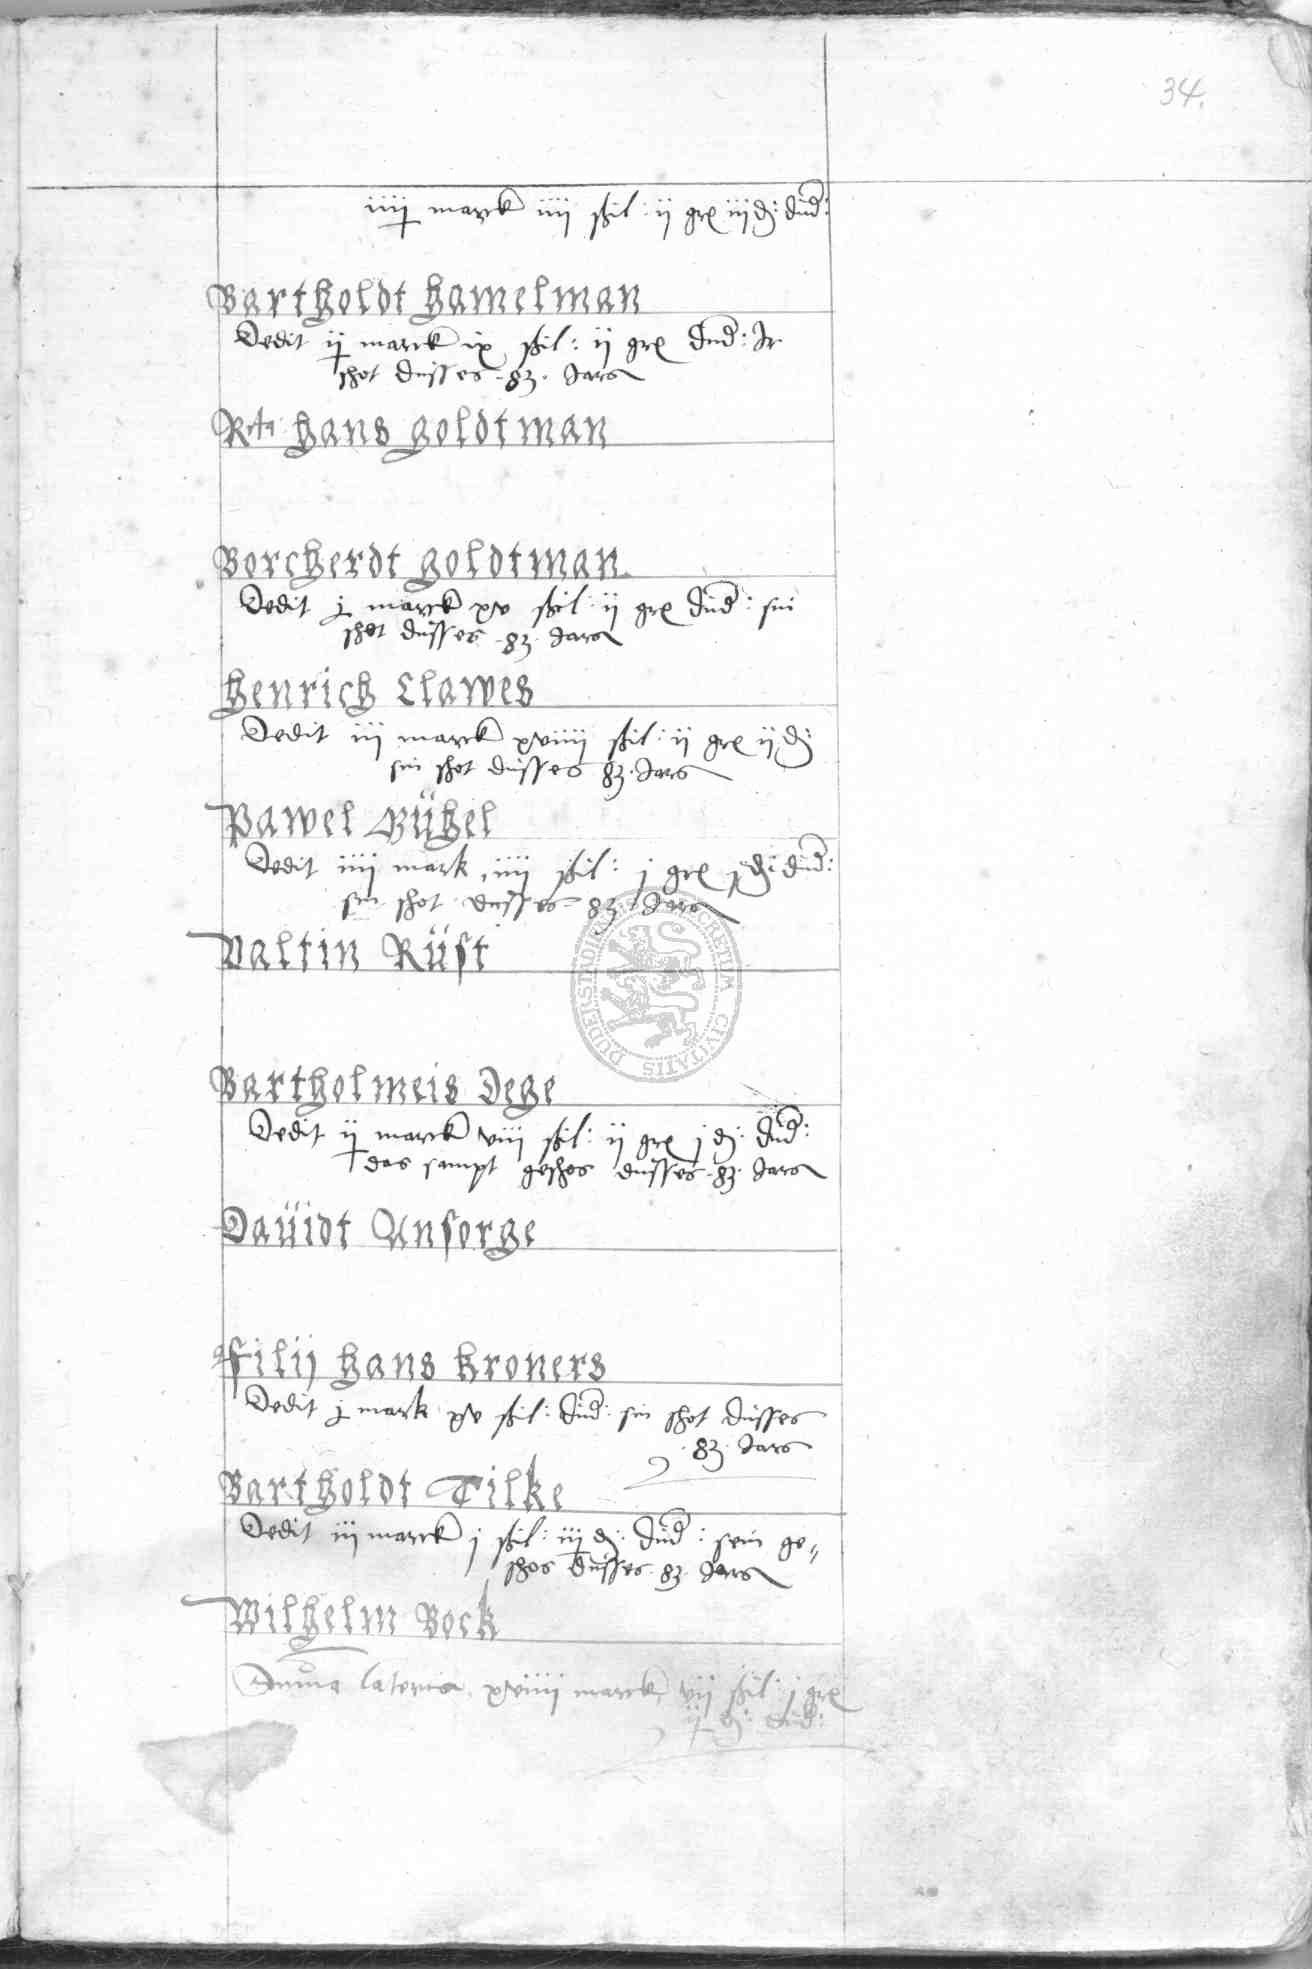 34.
iiij marck iiij ßil: ij grͦ iij d: dud:
Bartholdt Hamelman
Dedit ij marck ix ßil: ij gr dud: Ir
schot dusses .83. Jars
Hans Goldtman
Borcherdt Goldtman
Dedit j marck xv ßil: ij gr dud: sin
schot dusses .83. Jars
Henrich Clawes
Dedit iij marck xviiij ßil: ij gr ij d:
sin schot dusses 83. Jars
Pawel Bühel
Dedit iiij mark, iiij ßil: j gr j d: dud:
sin schot dusses 83. Jars
Valtin Rüst
SECRETUM CIVITATIS DUDERSTADIENSIS
Bartholmeis Dege
Dedit ij marck viij ßil: ij gr j d: dud:
das sampt geschos dusses .83. Jars
Dauidt Ansorge
Filij Hans Kroners
Dedit j mark xv ßil: dud: sin schot dusses
.83. Jars
Bartholdt Tilke
Dedit iij marck j ßil: iij d: dud: sein ge=
schos dusses .83. Jars
Wilhelm Bock
Suma lateris, xviiij marck, vij ßil: j gr
ij d: dud: